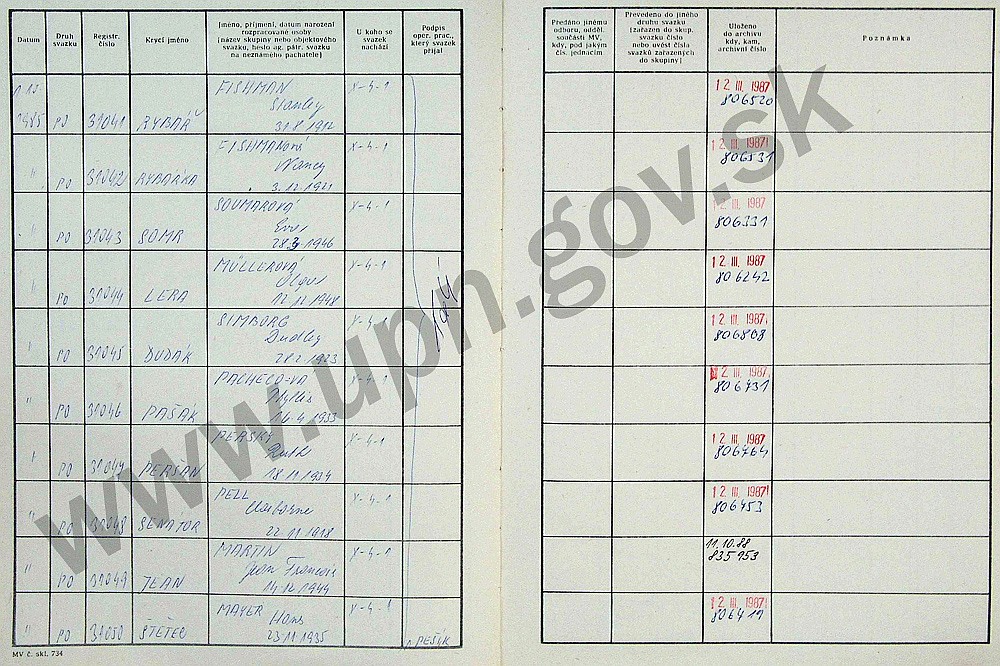 Datum
Druh svazku
Registr. číslo
Krycí jméno
Jméno, příjmení, datum narození
rozpracované osoby
[název skupiny nebo objektového
svazku, heslo ag. pátr. svazku
na neznámého pachatele]
U koho se
svazek
nachází
Podpis
oper. prac.,
který svazek
přijal
Předáno jinému
odboru, odděl.
součásti MV,
kdy, pod jakým
čís. jednacím
Převedeno do jiného
druhu svazku
[zařazen do skup.
svazku číslo
nebo uvést čísla
svazků zařazených
do skupiny]
Uloženo
do archivu
kdy, kam,
archivní číslo
Poznámka
1985 PO 31041 RYBÁŘ FISHMAN X-4-1
Stanley
31.8 1912
12. III. 1987
806520
" PO 31042 RYBÁŘKA FISHMANová X-4-1
Nancy
3.12.1921
12. III. 1987
806531
" PO 31043 SOMR SOUMAROVÁ X-4-1
Eva
28.3 1946
12. III. 1987
806331
" PO 31044 LERA MÜLLEROVÁ X-4-1
Olga
12.12 1948
12. III. 1987
806242
" PO 31045 DUDÁK SIMBORG X-4-1
Dudley
1923
12. III. 1987
806808
" PO 31046 PAŠÁK PACHECO-VA X-4-1
Phyllis
16.4 1933
12. III. 1987
806431
" PO 31047 PERŠAN PERSKY X-4-1
Ruth
18.11 1934
12. III. 1987
806464
" PO 31048 SENATOR PELL X-4-1
Claiborne
22.11.1918
12. III. 1987
806453
" PO 31049 JEAN MARTIN X-4-1
Jean Francois
14.12 1944
11.10.88
835953
" PO 31050 ŠTĚTEC MAYER X-4-1
Hans
23.11.1935
PEŠÍK
12. III. 1987
806419
MV č. skl. 734
www.upn.gov.sk